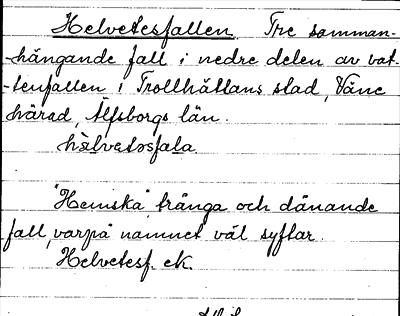 Helvetesfallen. Tre samman-
-hängande fall i nedre delen av vat-
-tenfallen i Trollhättans stad, Väne
härad, Älfsborgs län.
hälvetəsfala.
"Hemska" trånga och dånande
fall, varpå namnet väl syftar.
Helvetesf. ek.